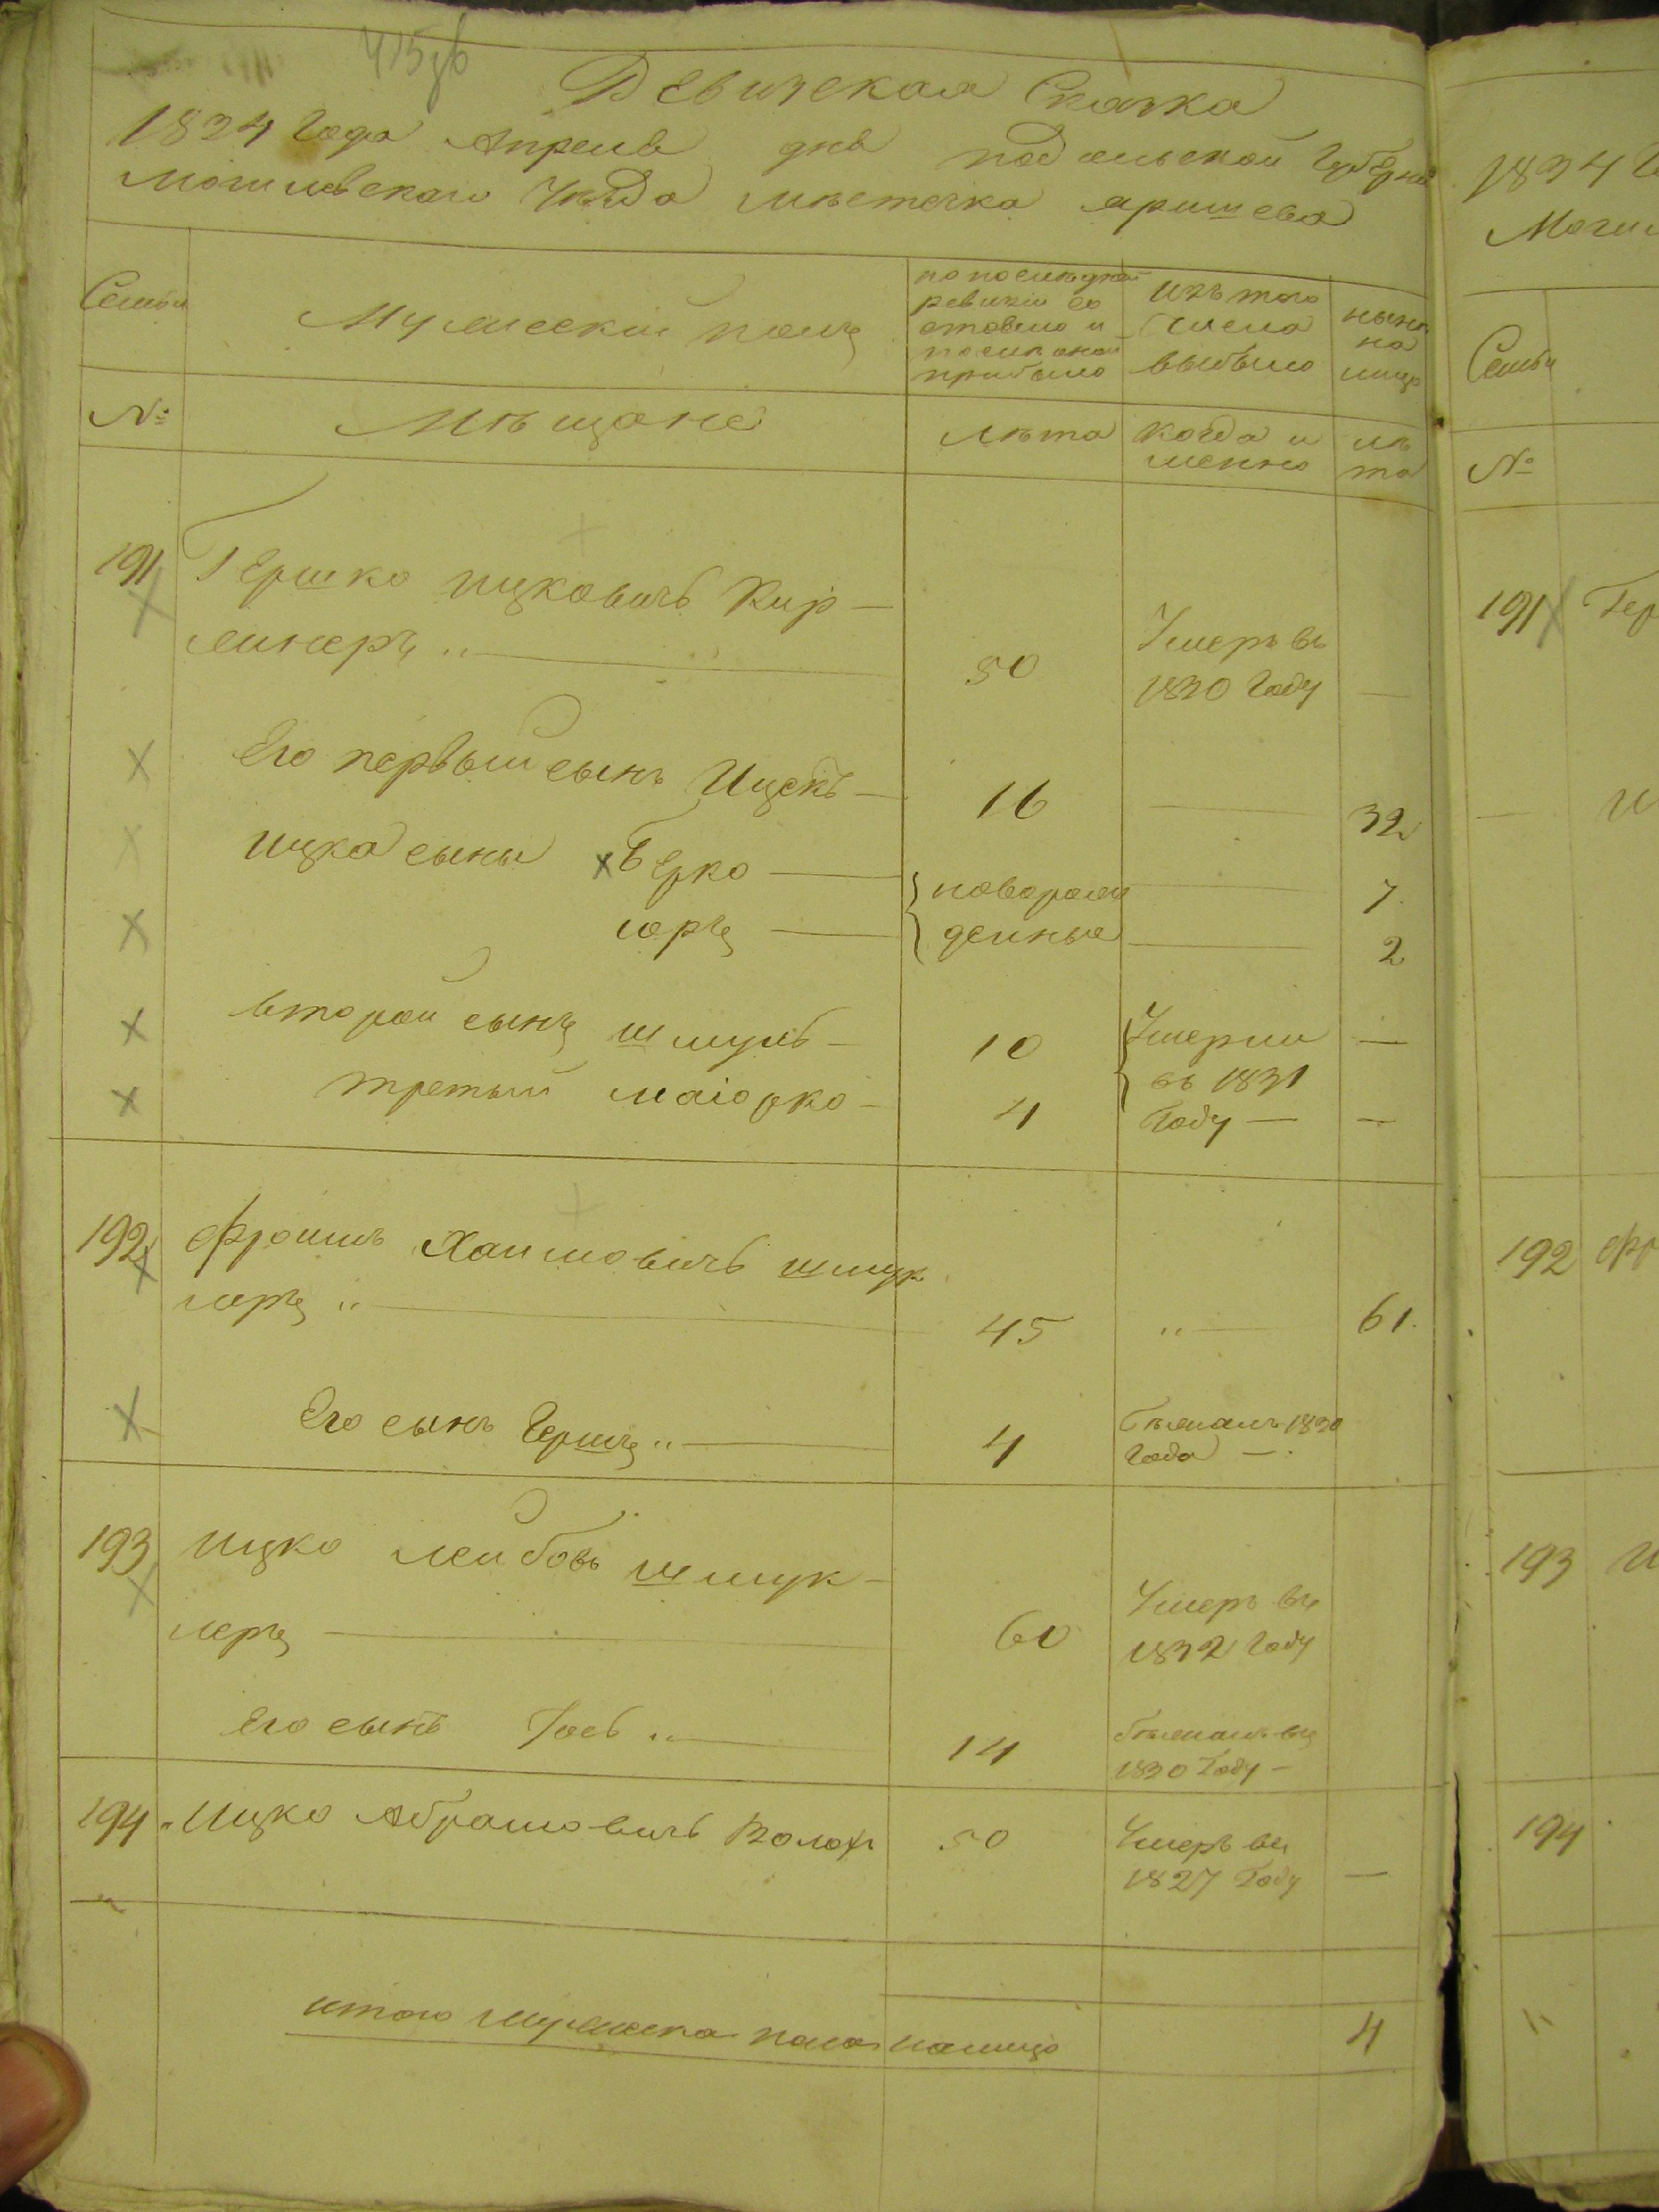 Ревизская Сказка
1834 Года Апреля дня подольской Губерніи
могилевского Уезда местечка яришева
Семьи
Мужеский полъ
по последней
ревизіи со
стояло и
после оной
прибыло
изъ того
числа
выбыло
ныне
на
лицо
№
Мещане
лета
когда и
менно
ле
та
191
Гершко ицковичъ Кир-
линеръ
50
Умеръ въ
1830 Году
Его первый сынъ Ицекъ
16
32
ицка сыны Берко
новорож
7
юръ
денные
2
второй сынъ шмуль
10
Умерли
третый маіорко
4
въ 1831
Году
192
Фроимъ Хаимовичъ шмук
леръ
45
61
Его сынъ Гершъ
4
бежалъ 1830
Года
193
ицко лейбовъ шмук-
леръ
60
Умеръ въ
1832 Году
Его сынъ Іось
14
бежалъ въ
1830 Году
194
Ицко Абрамовичъ Волох
50
Умеръ въ
1827 Году
итого мужеска пола налицо
4
1834 Г
Могил
Семьи
№
191 Гер
И
192 Фр
193 И
194